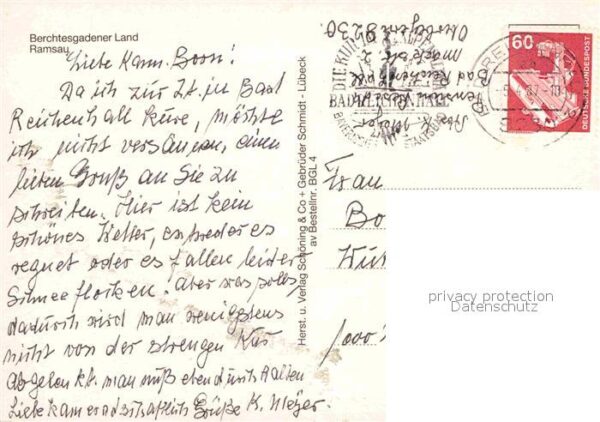 Berchtesgadener Land
Ramsau
Liebe Kam. Boon!
Da ich zur Zt. in Bad
Reichenhall kure, möchte
ich nicht versäumen, einen
lieben Gruß an Sie zu
schreiben. Hier ist kein
schönes Wetter, entweder es
regnet oder es fallen leider
Schneeflocken. Aber was solls,
dadurch wird man wenigstens
nicht von der strengen Kur
abgelenkt. man muß eben durchhalten
Liebe kameradschaftliche Grüße K. Meyer.
Herst. u. Verlag Schöning & Co + Gebrüder Schmidt - Lübeck
av Bestellnr. BGL 4
Abs. K. Meyer
Pension
Bad Reichenhall
2
8230
DIE KUR
BAD REICHENHALL
60
DEUTSCHE BUNDESPOST
Frau
Bo
1000
privacy protection
Datenschutz